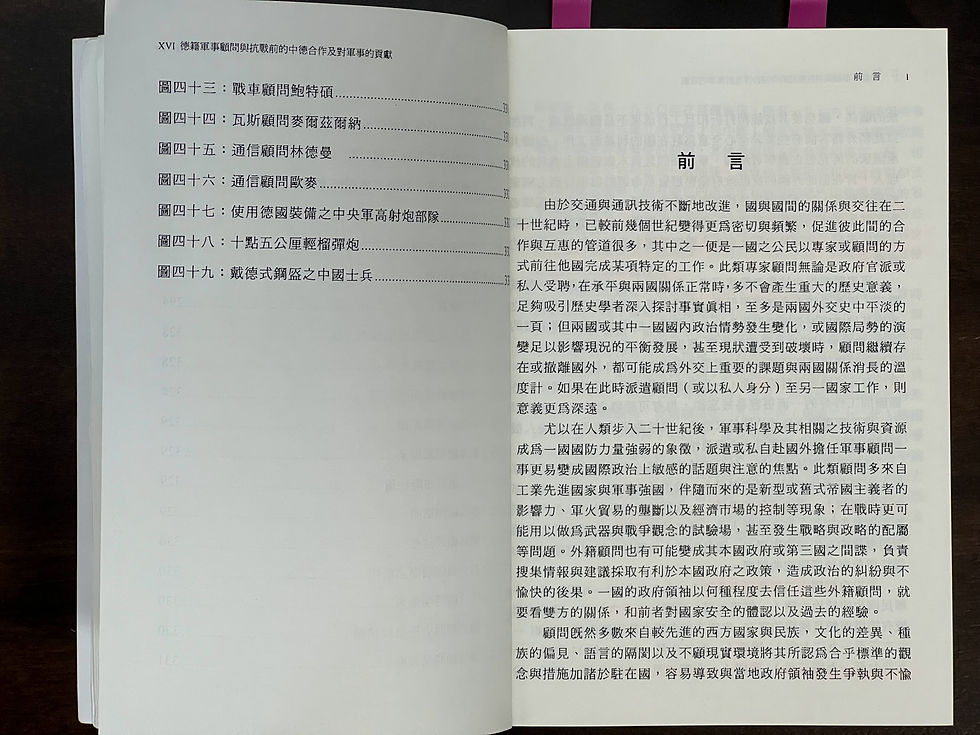 XVI 德籍軍事顧問與抗戰前的中德合作及對軍事的貢獻
圖四十三：戰車顧問鮑特碩
圖四十四：瓦斯顧問麥爾茲爾納
圖四十五：通信顧問林德曼
圖四十六：通信顧問歐麥
圖四十七：使用德國裝備之中央軍高射炮部隊
圖四十八：十點五公厘輕榴彈炮
圖四十九：戴德式鋼盔之中國士兵
前 言 I
前 言
由於交通與通訊技術不斷地改進，國與國間的關係與交往在二
十世紀時，已較前幾個世紀變得更爲密切與頻繁，促進彼此間的合
作與互惠的管道很多，其中之一便是一國之公民以專家或顧問的方
式前往他國完成某項特定的工作。此類專家顧問無論是政府官派或
私人受聘，在承平與兩國關係正常時，多不會產生重大的歷史意義，
足夠吸引歷史學者深入探討事實眞相，至多是兩國外交史中平淡的
一頁；但兩國或其中一國國內政治情勢發生變化，或國際局勢的演
變足以影響現況的平衡發展，甚至現狀遭受到破壞時，顧問繼續存
在或撤離國外，都可能成爲外交上重要的課題與兩國關係消長的溫
度計。如果在此時派遣顧問（或以私人身分）至另一國家工作，則
意義更爲深遠。
尤以在人類步入二十世紀後，軍事科學及其相關之技術與資源
成爲一國國防力量強弱的象徵，派遣或私自赴國外擔任軍事顧問一
事更易變成國際政治上敏感的話題與注意的焦點。此類顧問多來自
工業先進國家與軍事強國，伴隨而來的是新型或舊式帝國主義者的
影響力、軍火貿易的壟斷以及經濟市場的控制等現象；在戰時更可
能用以做爲武器與戰爭觀念的試驗場，甚至發生戰略與政略的配屬
等問題。外籍顧問也有可能變成其本國政府或第三國之間諜，負責
搜集情報與建議採取有利於本國政府之政策，造成政治的糾紛與不
愉快的後果。一國的政府領袖以何種程度去信任這些外籍顧問，就
要看雙方的關係，和前者對國家安全的體認以及過去的經驗。
顧問旣然多數來自較先進的西方國家與民族，文化的差異、種
族的偏見、語言的隔閡以及不顧現實環境將其所認爲合乎標準的觀
念與措施加諸於駐在國，容易導致與當地政府領袖發生爭執與不愉